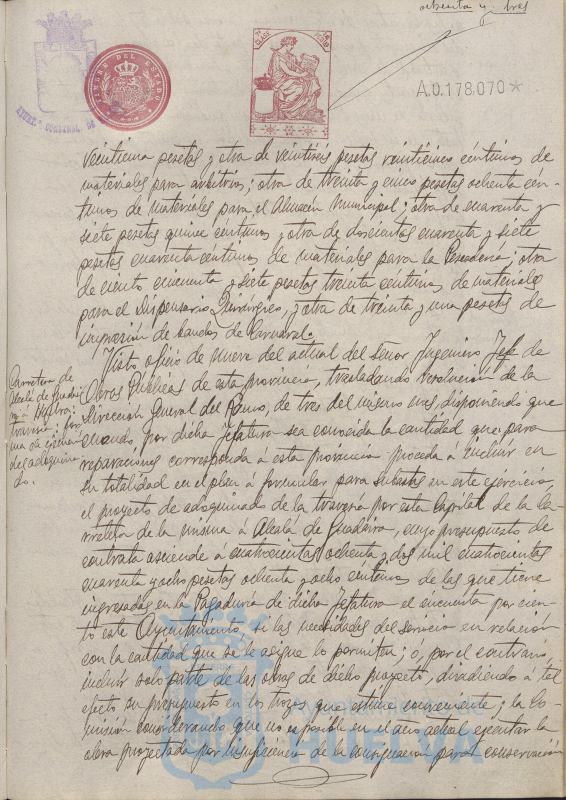 ochenta y tres
TIMBRE DEL ESTADO
A.0.178.070*
veintiuna pesetas, y otra de veintiseis pesetas veinticinco céntimos de
materiales para arbitrios; otra de treinta y cinco pesetas ochenta cén-
timos de materiales para el Almacén Municipal; otra de cuarenta y
siete pesetas quince céntimos y otra de doscientas cuarenta y siete
pesetas cuarenta céntimos de materiales para la Pescadería; otra
de ciento cincuenta y siete pesetas treinta céntimos de materiales
para el Dispensario Quirúrgico, y otra de treinta y una pesetas de
impresión de bandos de Carnaval.
Visto oficio de nueve del actual del Señor Ingeniero Jefe de
Obras Públicas de esta provincia, trasladando resolución de la
Dirección General del Ramo, de tres del mismo mes, disponiendo que
cuando por dicha Jefatura sea conocida la cantidad que para
reparaciones corresponda á esta provincia proceda á incluir en
su totalidad en el plan á formular para subastas en este ejercicio,
el proyecto de adoquinado de la travesía por esta Capital de la Ca-
rretera de la misma á Alcalá de Guadaira, cuyo presupuesto de
contrata asciende á cuatrocientas ochenta y dos mil cuatrocientas
cuarenta y ocho pesetas ochenta y ocho céntimos de las que tiene
ingresadas en la Pagaduría de dicha Jefatura el cincuenta por cien-
to este Ayuntamiento, si las necesidades del servicio en relación
con la cantidad que se le asigne lo permiten; ó, por el contrario,
incluir solo parte de las obras de dicho proyecto, dividiendo á tal
efecto su presupuesto en los trozos que estime conveniente; la Co-
misión considerando que no es posible en el año actual ejecutar la
obra proyectada por insuficiencia de la consignación para conservación
Carretera de
Alcalá de Guadai-
ra á
travesía:
del adoquina-
do.